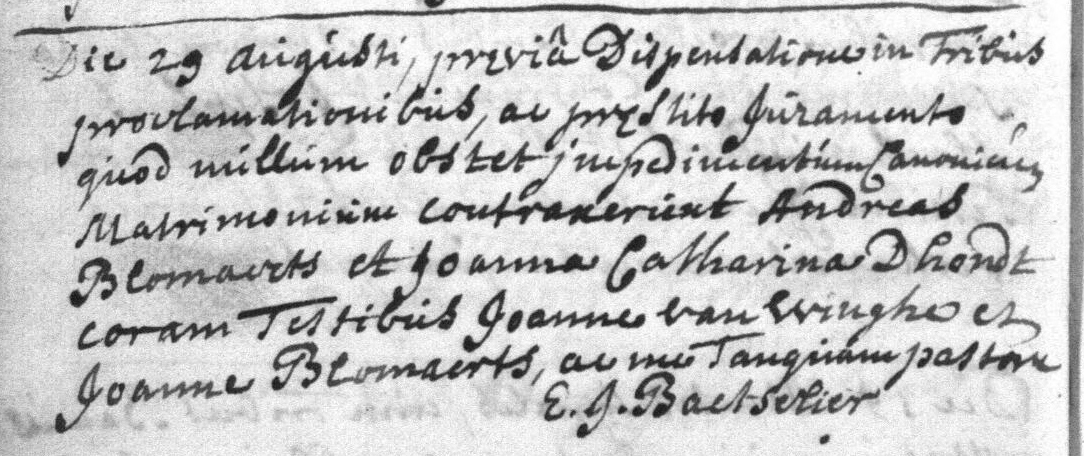 Die 29 augusti, pręviâ Dispensatione in Tribus
proclamationibus, ac pręstito Juramento
quod nullum obstet impedimentum Canonicum
Matrimonium contraxerunt Andreas
Blomaerts et Joanna Catharina Dhondt
coram Testibus Joanne van Winghe et
Joanne Blomaerts, ac me Tanquam pastore
E. J. Baetselier